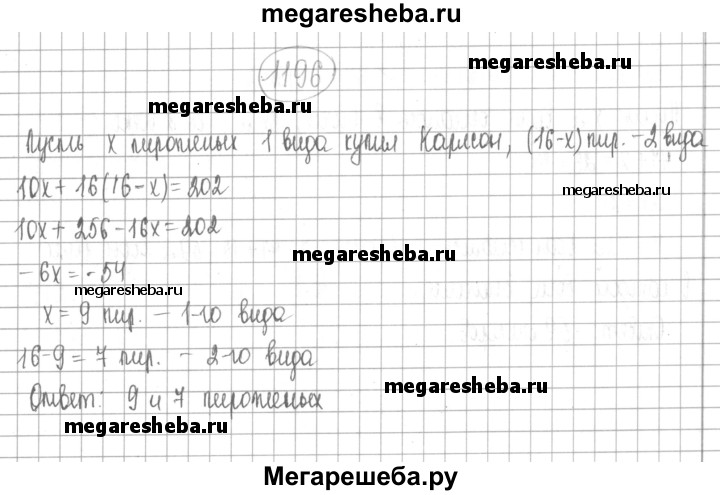 megaresheba.ru
1196
megaresheba.ru
megaresheba.ru
Пусть x пирожных 1 вида купил Карлсон, (16-x) пир. - 2 вида
10x + 16(16-x) = 202
megaresheba.ru
10x + 256 - 16x = 202
megaresheba.ru
- 6x = - 54
megaresheba.ru
x = 9 пир. - 1-го вида
16-9 = 7 пир. - 2-го вида
megaresheba.ru
Ответ: 9 и 7 пирожных
megaresheba.ru
Мегарешеба.ру